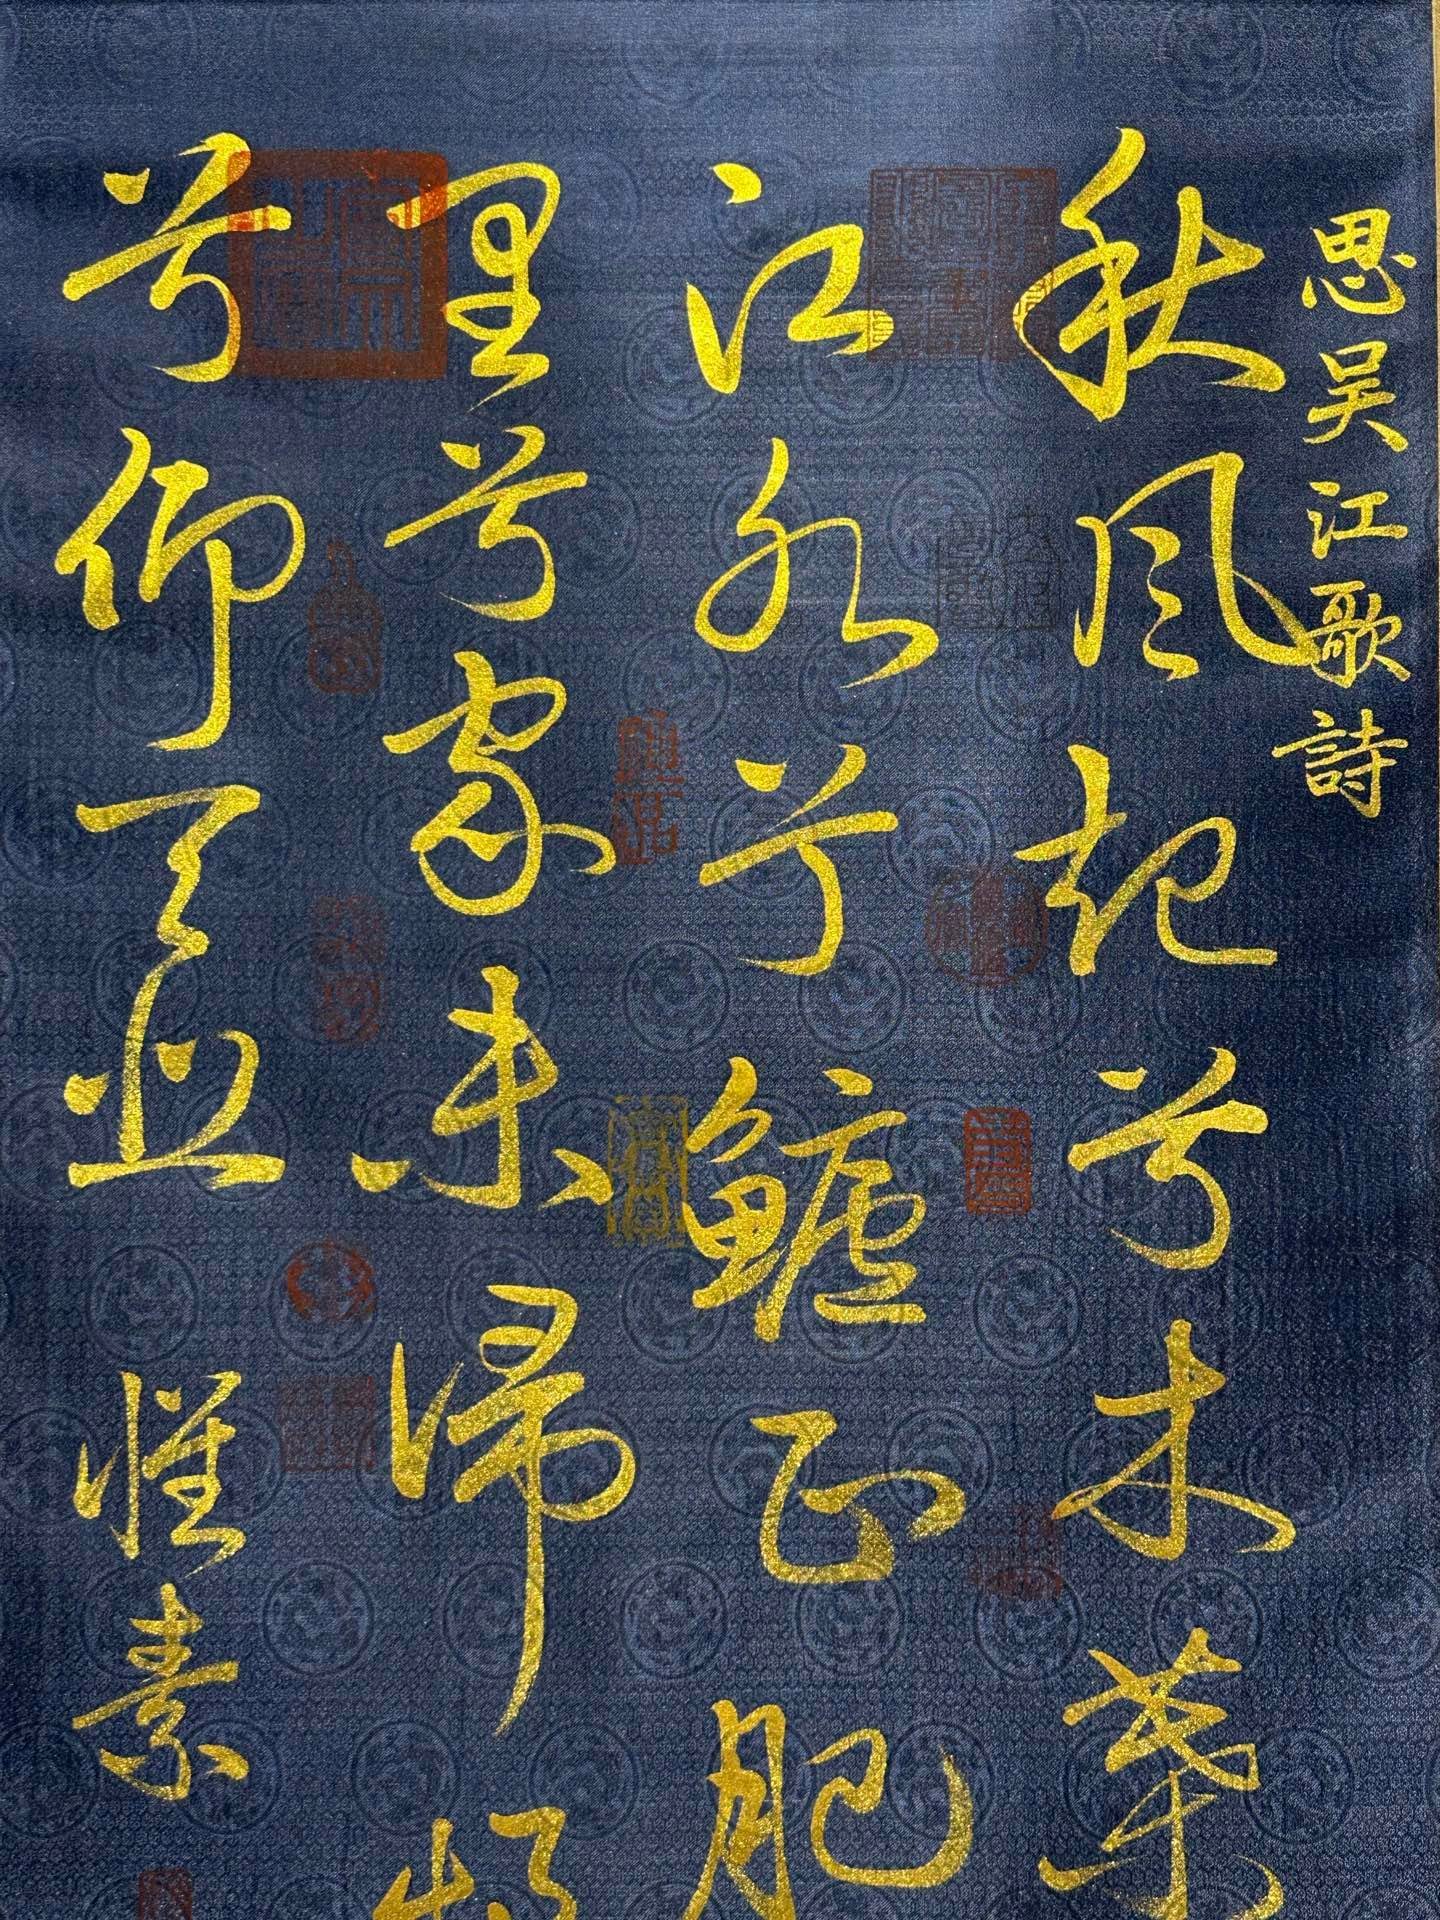 思吴江歌詩
秋风起兮木葉
江水兮鱸正肥
里兮家未帰
兮仰天悲
懷素